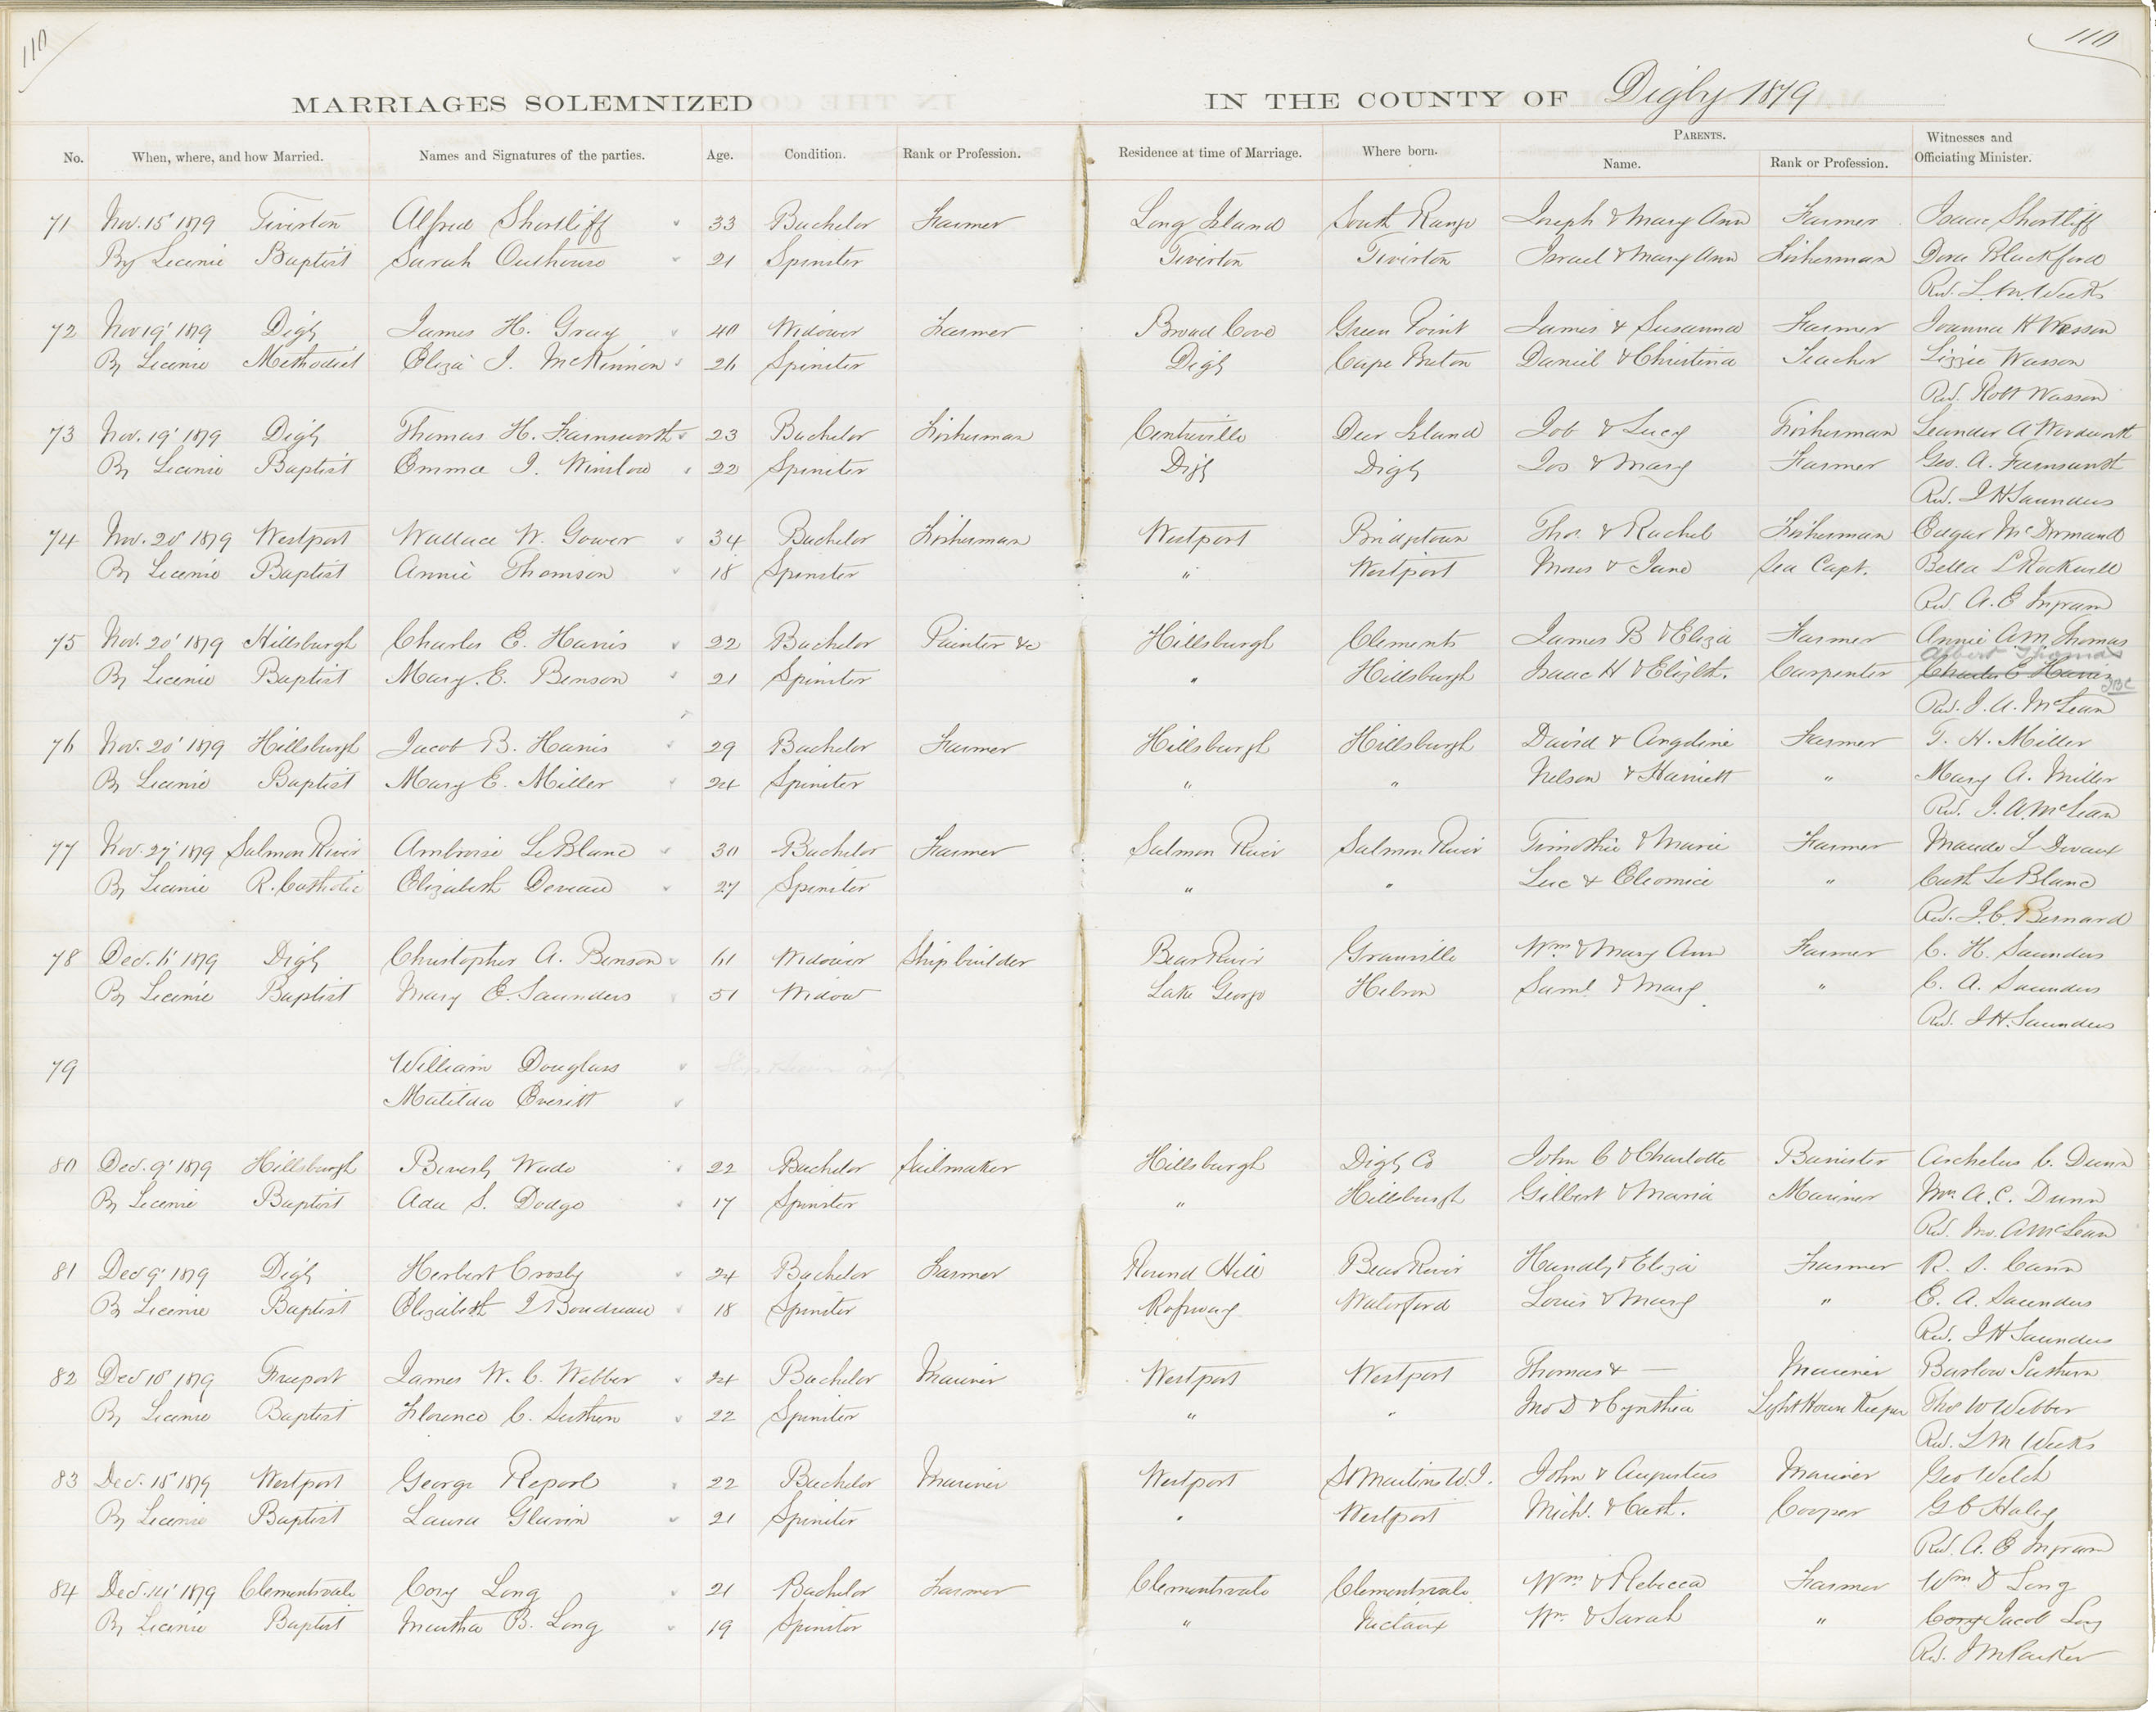 110
110
MARRIAGES SOLEMNIZED IN THE COUNTY OF Digby 1879
No. When, where, and how Married. Names and Signatures of the parties. Age. Condition. Rank or Profession. Residence at time of Marriage. Where born. PARENTS. Name. Rank or Profession. Witnesses and Officiating Minister.
71 Nov. 15' 1879 Tiverton Alfred Shortliff 33 Bachelor Farmer Long Island South Range Joseph & Mary Ann Farmer Isaac Shortliff
By Licence Baptist Sarah Outhouse 21 Spinster Tiverton Tiverton Israel & Mary Ann Fisherman Dora Blackford
Rev. L. M. Weeks
72 Nov 19' 1879 Digby James H. Gray 40 Widower Farmer Broad Cove Green Point James & Susanna Farmer Joanna H Wasson
By Licence Methodist Eliza J. McKinnon 26 Spinster Digby Cape Breton Daniel & Christina Teacher Lizzie Wasson
Rev. Robt Wasson
73 Nov. 19' 1879 Digby Thomas H. Farnsworth 23 Bachelor Fisherman Centreville Deer Island Job & Lucy Fisherman Leander A
By Licence Baptist Emma J. Winslow 22 Spinster Digby Digby Jos & Mary Farmer Geo. A. Farnsworth
Rev. J H Saunders
74 Nov. 20' 1879 Westport Wallace W. Gower 34 Bachelor Fisherman Westport Bridgetown Thos. & Rachel Fisherman Edgar McDormand
By Licence Baptist Annie Thomson 18 Spinster " Westport Moses & Jane Sea Capt. Bella L Rockwell
Rev. A. E Ingram
75 Nov. 20' 1879 Hillsburgh Charles E. Harris 22 Bachelor Painter &c Hillsburgh Clements James B & Eliza Farmer Annie A.M. Thomas
Albert Thomas
By Licence Baptist Mary. E. Benson 21 Spinster " Hillsburgh Isaac H & Elizbth. Carpenter Charles E Harris
Rev. J. A. McLean
76 Nov. 20' 1879 Hillsburgh Jacob B. Harris 29 Bachelor Farmer Hillsburgh Hillsburgh David & Angeline Farmer T. H. Miller
By Licence Baptist Mary E. Miller 24 Spinster " " Nelson & Harriett " Mary A. Miller
Rev. J. A. McLean
77 Nov. 27' 1879 Salmon River Ambroise LeBlanc 30 Bachelor Farmer Salmon River Salmon River Timothie & Marie Farmer Maude L
By Licence R. Catholic Elizabeth Deveau 27 Spinster " " Luc & Cleonice " Cath LeBlanc
Rev. J. C. Bernard
78 Dec. 6' 1879 Digby Christopher A. Benson 61 Widower Ship builder Bear River Granville Wm & Mary Ann Farmer C. H. Saunders
By Licence Baptist Mary E. Saunders 51 Widow Lake George Hebron Saml & Mary " C. A. Saunders
Rev. J H. Saunders
79 William Douglass
Matilda Everitt
80 Dec. 9' 1879 Hillsburgh Beverly Wade 22 Bachelor Sailmaker Hillsburgh Digby Co John C & Charlotte Barrister Archelus C. Dunn
By Licence Baptist Ada S. Dodge 17 Spinster " Hillsburgh Gilbert & Maria Mariner Mrs. A. C. Dunn
Rev. Jno. A McLean
81 Dec 9' 1879 Digby Herbert Crosby 24 Bachelor Farmer Round Hill Bear River Handly & Eliza Farmer R. S. Cann
By Licence Baptist Elizabeth J Boudreau 18 Spinster Rossway Waterford Louis & Mary " E. A. Saunders
Rev. J H Saunders
82 Dec 10' 1879 Freeport James W. C. Webber 24 Bachelor Mariner Westport Westport Thomas & — Mariner Barlow Suthern
By Licence Baptist Florence C. Suthern 22 Spinster " " Jno D & Cynthia Light House Keeper Thos W Webber
Rev. L M Weeks
83 Dec. 15' 1879 Westport George Repool 22 Bachelor Mariner Westport St Martins W.I. John & Augustus Mariner Geo Welch
By Licence Baptist Laura Glavin 21 Spinster " Westport Michl. & Cath. Cooper G C Haley
Rev. A. E Ingram
84 Dec. 14' 1879 Clementsvale Cory Long 21 Bachelor Farmer Clementsvale Clementsvale Wm & Rebecca Farmer Wm D Long
By Licence Baptist Martha B. Long 19 Spinster " Nictaux Wm. & Sarah " Cory Jacob Long
Rev. J M Parker